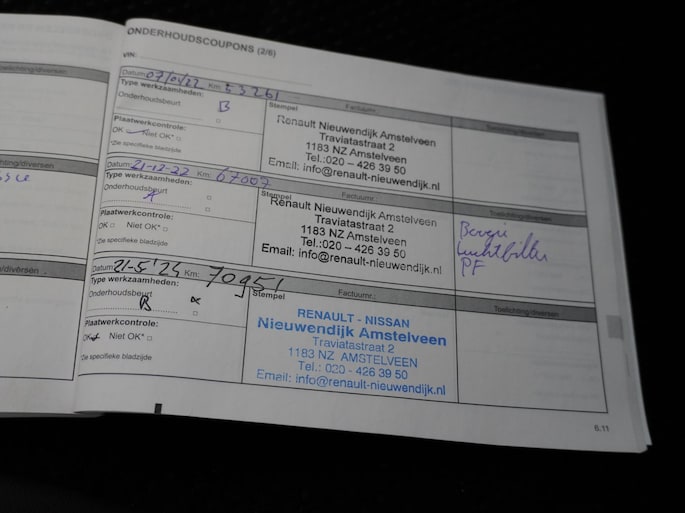 ONDERHOUDSCOUPONS (2/6)
VIN:
Datum: 07/01/22 Km: 53261
Type werkzaamheden:
Onderhoudsbeurt B
Plaatwerkcontrole:
OK Niet OK*
*Zie specifieke bladzijde
Stempel Factuurnr.:
Renault Nieuwendijk Amstelveen
Traviatastraat 2
1183 NZ Amstelveen
Tel.:020 – 426 39 50
Email: info@renault-nieuwendijk.nl
Toelichting/diversen
Datum: 21-12-22 Km: 67007
Type werkzaamheden:
Onderhoudsbeurt
A
Plaatwerkcontrole:
OK Niet OK*
*Zie specifieke bladzijde
Stempel Factuurnr.:
Renault Nieuwendijk Amstelveen
Traviatastraat 2
1183 NZ Amstelveen
Tel.:020 – 426 39 50
Email: info@renault-nieuwendijk.nl
Toelichting/diversen
luchtfilter
PF
Datum: 21-5'24 Km: 70951
Type werkzaamheden:
Onderhoudsbeurt
B
Plaatwerkcontrole:
OK Niet OK*
*Zie specifieke bladzijde
Stempel Factuurnr.:
RENAULT - NISSAN
Nieuwendijk Amstelveen
Traviatastraat 2
1183 NZ AMSTELVEEN
Tel.: 020 - 426 39 50
Email: info@renault-nieuwendijk.nl
Toelichting/diversen
6.11